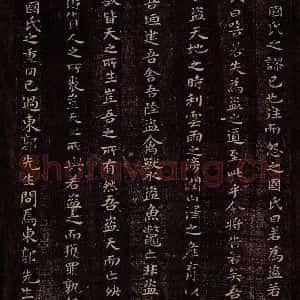 國氏之謬已也往而怨之國氏曰若為盜若
氏曰嘻若失為盜之道至此乎今將告若矣吾
盜天地之時利雲雨之滂潤山澤之產育以
吾垣建吾舍吾陸盜禽獸水盜魚鱉亡非盜
皆天之所生豈吾之所有然吾盜天而亡殃
貨人之所聚豈天之所與若盜之而獲罪孰
國氏之重罔己過東郭先生問焉東郭先生
Shufawang.cn